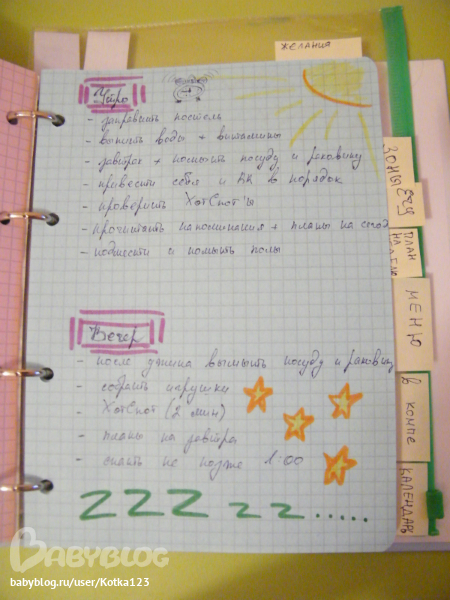 ЖЕЛАНИЯ
Утро
- заправить постель
- выпить воды + витамины
- завтрак + помыть посуду и раковину
- привести себя и ВК в порядок
- проверить ХотСпот'ы
- прочитать напоминания + планы на
- подмести и помыть полы
Вечер
- после ужина вымыть посуду и раковину
- собрать игрушки
- ХотСпот (2 мин)
- планы на завтра
- спать не позже 1:00
ZZZ zz.....
ЗОНЫ
ПЛАН
НА
НЕДЕЛЮ
МЕНЮ
в компе
КАЛЕНДАРЬ
BABYBLOG
babyblog.ru/user/Kotka123